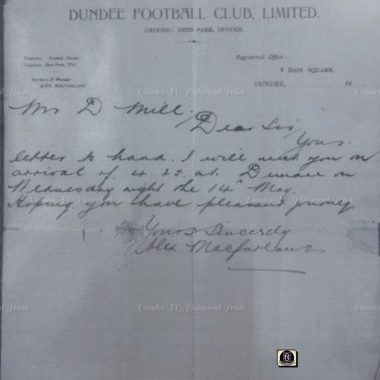 DUNDEE FOOTBALL CLUB, LIMITED.
GROUND: DENS PARK, DUNDEE.
Telegrams: Football, Dundee
Telephone: Dens Park,
Secretary & Manager
ALEX. MACFARLANE
Registered Office:
4 BAIN SQUARE,
DUNDEE, 19
Mr D Mill.
Dear Sir
Yours
letter to hand. I will meet you on
arrival of 4.25 at Dundee on
Wednesday night the 14th May
Hoping you have pleasant journey
Yours Sincerely
Alex Macfarlane
Dundee FC Historical Trust
Dundee FC Historical Trust
Dundee FC Historical Trust
Dundee FC Historical Trust